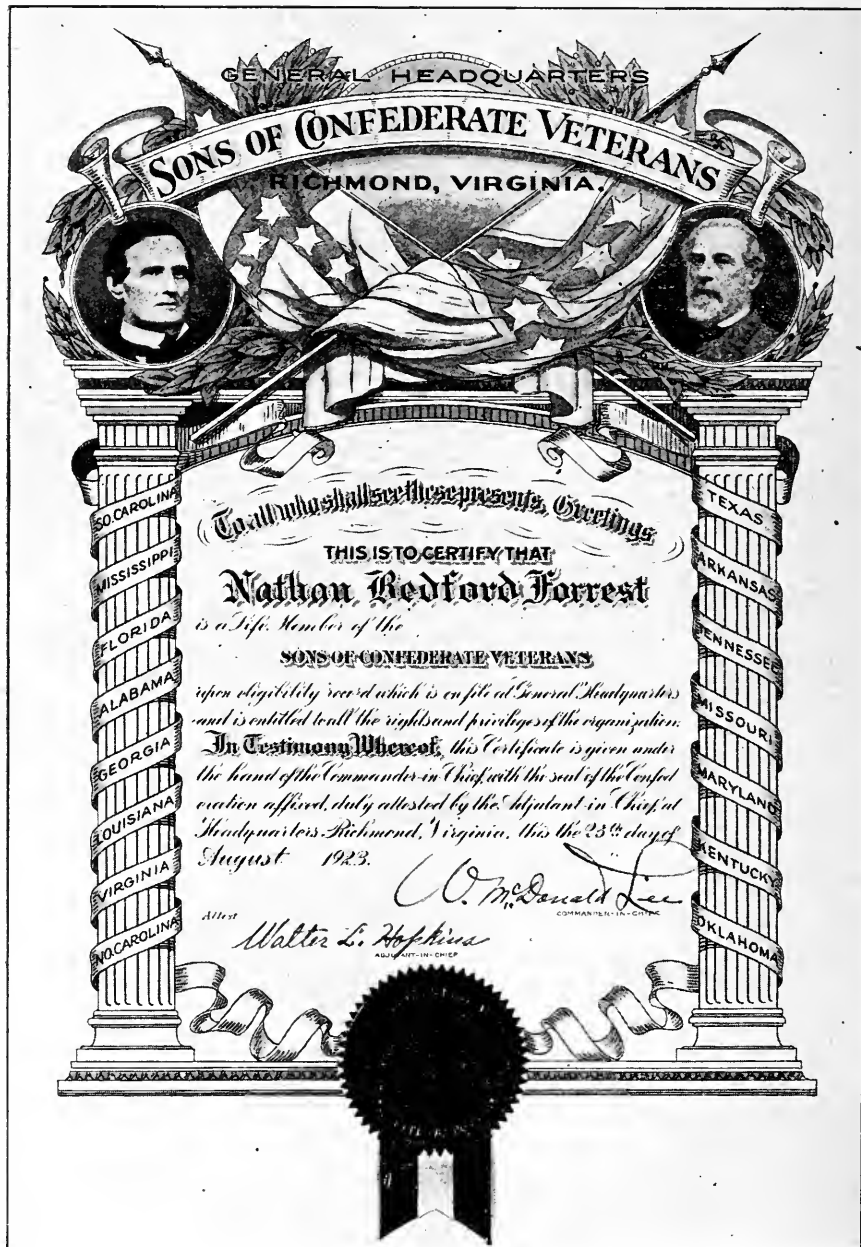 GENERAL HEADQUARTERS
SONS OF CONFEDERATE VETERANS
RICHMOND, VIRGINIA.
SO. CAROLINA
MISSISSIPPI
FLORIDA
ALABAMA
GEORGIA
LOUISIANA
VIRGINIA
NO. CAROLINA
To all who shall see these presents, Greetings
THIS IS TO CERTIFY THAT
Nathan Bedford Forrest
is a Life Member of the
SONS OF CONFEDERATE VETERANS
upon eligibility record which is on file at General Headquarters
and is entitled to all the rights and privileges of the organization.
In Testimony Whereof, this Certificate is given under
the hand of the Commander-in-Chief, with the seal of the Confed
eration affixed, duly attested by the Adjutant-in-Chief, at
Headquarters Richmond, Virginia, this the 23th day of
August 1923.
W. McDonald Lee
COMMANDER-IN-CHIEF
Attest
Walter L. Hopkins
ADJUTANT-IN-CHIEF
TEXAS
ARKANSAS
TENNESSEE
MISSOURI
MARYLAND
KENTUCKY
OKLAHOMA